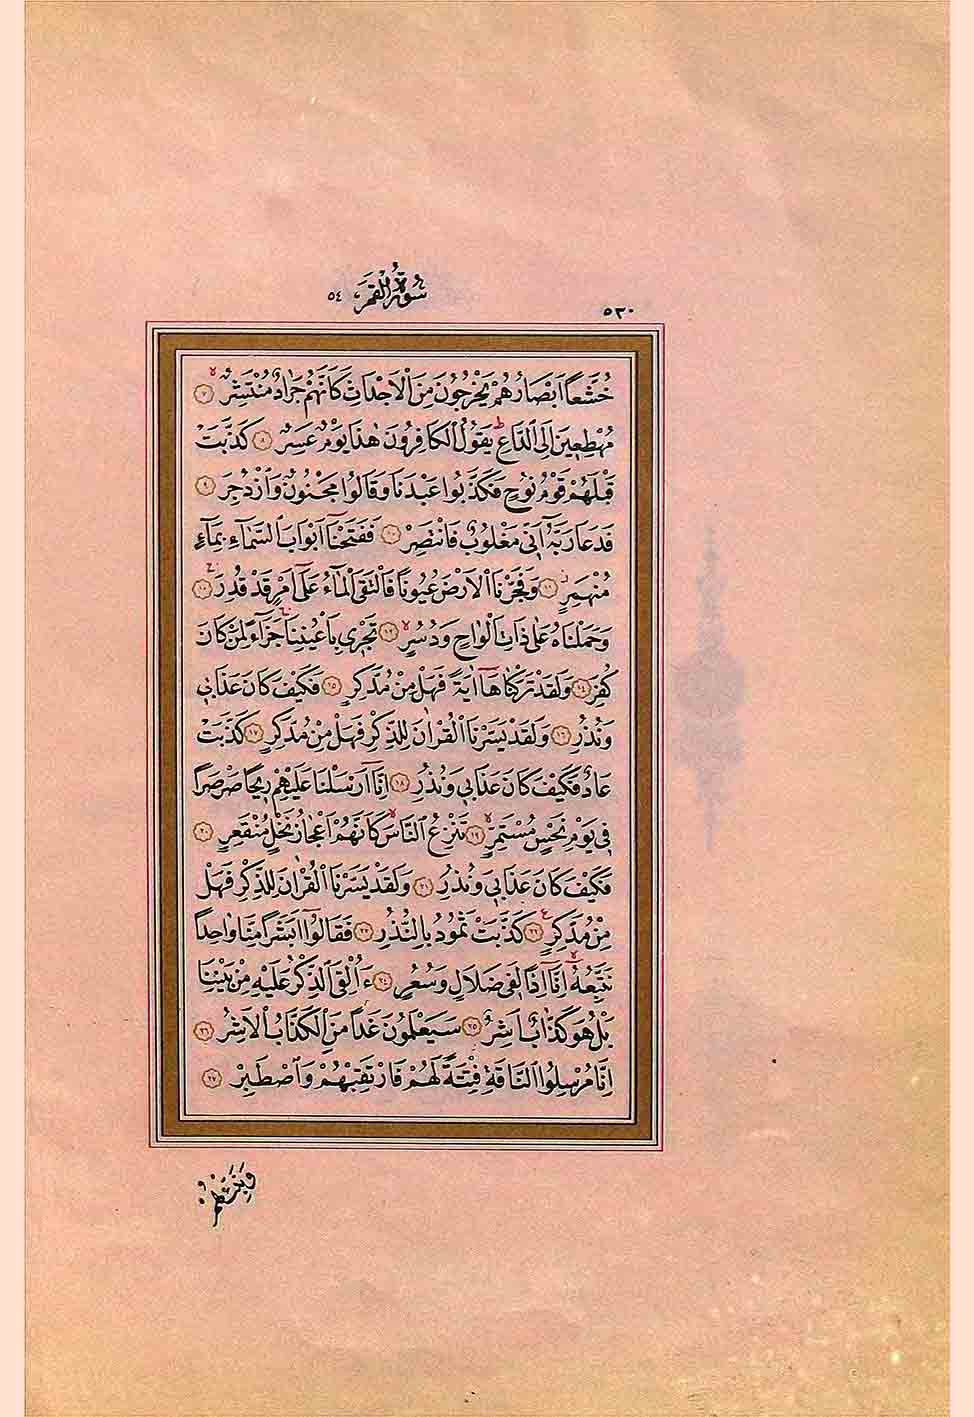 سُورَةُ الْقَمَرِ ٥٤
٥٣٠
خُشَّعاً اَبْصَارُهُمْ يَخْرُجُونَ مِنَ الْاَجْدَاثِ كَاَنَّهُمْ جَرَادٌ مُنْتَشِرٌۙ ﴿٧﴾
مُهْطِعٖينَ اِلَى الدَّاعِؕ يَقُولُ الْكَافِرُونَ هٰذَا يَوْمٌ عَسِرٌ ﴿٨﴾ كَذَّبَتْ
قَبْلَهُمْ قَوْمُ نُوحٍ فَكَذَّبُوا عَبْدَنَا وَقَالُوا مَجْنُونٌ وَازْدُجِرَ ﴿٩﴾
فَدَعَا رَبَّهُٓ اَنّٖي مَغْلُوبٌ فَانْتَصِرْ ﴿١٠﴾ فَفَتَحْنَٓا اَبْوَابَ السَّمَٓاءِ بِمَٓاءٍ
مُنْهَمِرٍؗ ﴿١١﴾ وَفَجَّرْنَا الْاَرْضَ عُيُوناً فَالْتَقَى الْمَٓاءُ عَلٰٓى اَمْرٍ قَدْ قُدِرَۚ ﴿١٢﴾
وَحَمَلْنَاهُ عَلٰى ذَاتِ اَلْوَاحٍ وَدُسُرٍۙ ﴿١٣﴾ تَجْرٖي بِاَعْيُنِنَاۚ جَزَٓاءً لِمَنْ كَانَ
كُفِرَ ﴿١٤﴾ وَلَقَدْ تَرَكْنَاهَٓا اٰيَةً فَهَلْ مِنْ مُدَّكِرٍ ﴿١٥﴾ فَكَيْفَ كَانَ عَذَابٖي
وَنُذُرِ ﴿١٦﴾ وَلَقَدْ يَسَّرْنَا الْقُرْاٰنَ لِلذِّكْرِ فَهَلْ مِنْ مُدَّكِرٍ ﴿١٧﴾ كَذَّبَتْ
عَادٌ فَكَيْفَ كَانَ عَذَابٖي وَنُذُرِ ﴿١٨﴾ اِنَّٓا اَرْسَلْنَا عَلَيْهِمْ رٖيحاً صَرْصَراً
فٖي يَوْمِ نَحْسٍ مُسْتَمِرٍّۙ ﴿١٩﴾ تَنْزِعُ النَّاسَۙ كَاَنَّهُمْ اَعْجَازُ نَخْلٍ مُنْقَعِرٍ ﴿٢٠﴾
فَكَيْفَ كَانَ عَذَابٖي وَنُذُرِ ﴿٢١﴾ وَلَقَدْ يَسَّرْنَا الْقُرْاٰنَ لِلذِّكْرِ فَهَلْ
مِنْ مُدَّكِرٍࣖ ﴿٢٢﴾ كَذَّبَتْ ثَمُودُ بِالنُّذُرِ ﴿٢٣﴾ فَقَالُٓوا اَبَشَراً مِنَّا وَاحِداً
نَتَّبِعُهُٓۙ اِنَّٓا اِذاً لَفٖي ضَلَالٍ وَسُعُرٍ ﴿٢٤﴾ ءَاُلْقِيَ الذِّكْرُ عَلَيْهِ مِنْ بَيْنِنَا
بَلْ هُوَ كَذَّابٌ اَشِرٌ ﴿٢٥﴾ سَيَعْلَمُونَ غَداً مَنِ الْكَذَّابُ الْاَشِرُ ﴿٢٦﴾
اِنَّا مُرْسِلُوا النَّاقَةِ فِتْنَةً لَهُمْ فَارْتَقِبْهُمْ وَاصْطَبِرْؗ ﴿٢٧﴾
وَنَبِّئْهُمْ